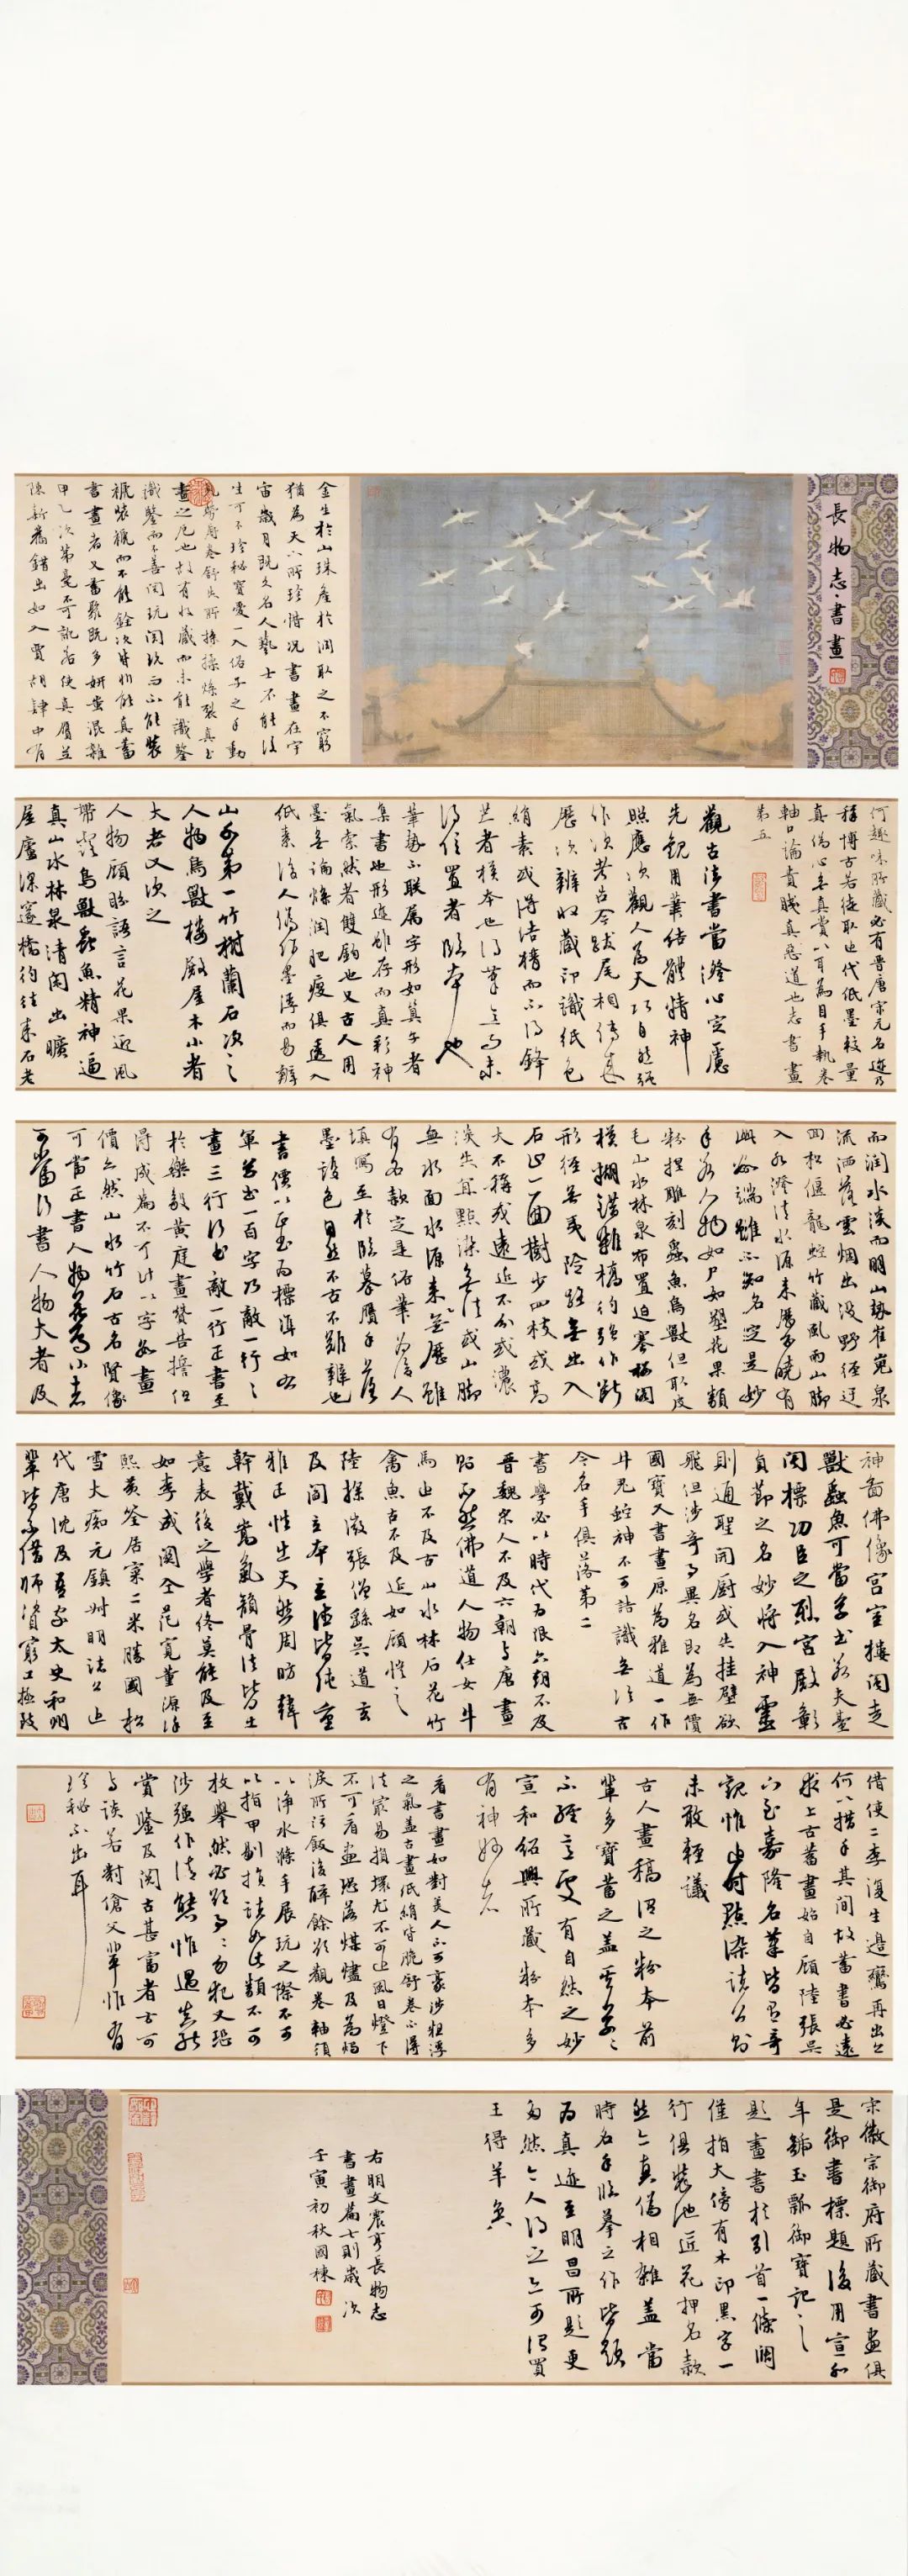 長物志·書畫
金生於山珠産於淵取之不窮
猶為天下所珍惜况書畫在宇
宙歲月既久名人藝士不能復
生可不珍秘寶愛一入俗子之手動
見勞辱卷舒失所操揉燥裂真書
畫之厄也故有收藏而未能識鑒
識鑒而不善閱玩閱玩而不能裝
褫裝褫而不能銓次皆非能真蓄
書畫者又蓄聚既多妍蚩混雜
甲乙次第毫不可訛若使真贋並
陳新舊錯出如入賈胡肆中有
何趣味所藏必有晉唐宋元名迹乃
稱博古若徒取近代紙墨較量
真偽心無真賞以耳為目手執卷
軸口論貴賤真惡道也志書畫
第五
觀古法書當澄心定慮
先觀用筆結體精神
照應次觀人為天巧自然强
作次考古今跋尾相傳來
歷次辨收藏印識紙色
絹素或得結構而不得鋒
芒者模本也得筆意而未
得位置者臨本也
筆勢不聯屬字形如算子者
集書也形迹雖存而真彩神
氣索然者雙鈎也又古人用
墨無論燥潤肥瘦俱透入
紙素後人偽作墨浮而易辨
山水第一竹樹蘭石次之
人物鳥獸樓殿屋木小者
大者又次之
人物顧盼語言花果迎風
帶露鳥獸蟲魚精神逼
真山水林泉清閑幽曠
屋廬深邃橋彴往來石老
而潤水淡而明山勢崔嵬泉
流洒落雲烟出没野徑迂
回松偃龍蛇竹藏風雨山脚
入水澄清水源來歷分曉有
此數端雖不知名定是妙
手若人物如尸如塑花果類
粉捏雕刻蟲魚鳥獸但取皮
毛山水林泉布置迫塞樓閣
模糊錯雜橋彴强作斷
形徑無夷險路無出入
石止一面樹少四枝或高
大不稱或遠近不分或濃
淡失宜點染無法或山脚
無水面水源無來歷雖
有名款定是俗筆為後人
填寫至於臨摹贋手落
墨設色自然不古不難辨也
書價以正書為標準如右
軍草書一百字乃敵一行行
書三行行書敵一行正書至
於樂毅黄庭畫贊告誓但
得成篇不可計以字數畫
價亦然山水竹石古名賢像
可當正書人物花鳥小者
可當行書人物大者及
神圖佛像宫室樓閣走
獸蟲魚可當草書若夫臺
閣標功臣之烈宫殿彰
貞節之名妙將入神靈
則通聖開厨或失挂壁欲
飛但涉奇事異名即為無價
國寶又書畫原為雅道一作
牛鬼蛇神不可詰識無論古
今名手俱落第二
書學必以時代為限六朝不及
晉魏宋人不及六朝與唐畫
則不然佛道人物仕女牛
馬近不及古山水林石花竹
禽魚古不及近如顧愷之
陸探微張僧繇吴道玄
及閻立本立德皆純重
雅正性出天然周昉韓
幹戴嵩氣韻骨法皆出
意表後之學者終莫能及至
如李成關仝范寬董源徐
熙黄筌居寀二米勝國松
雪大癡元鎮叔明諸公近
代唐沈及吾家太史和州
輩皆不借師資窮工極致
借使二李復生邊鸞再出亦
何以措手其間故蓄書必遠
求上古蓄畫始自顧陸張吴
下至嘉隆名筆皆有奇
觀惟近時點染諸公則
未敢輕議
古人畫稿謂之粉本前
輩多寶蓄之蓋其草草
不經意處有自然之妙
宣和紹興所藏粉本多
有神妙者
看書畫如對美人不可毫涉粗浮
之氣蓋古畫紙絹皆脆舒卷不得
法最易損壞尤不可近風日燈下
不可看畫恐落煤燼及為燭
淚所污飯後醉餘欲觀卷軸須
以净水滌手展玩之際不可
以指甲剔損諸如此類不可
枚舉然必欲事事勿犯又恐
涉强作清態惟遇真能
賞鑒及閱古甚富者方可
與談若對傖父輩惟有
珍秘不出耳
宋徽宗御府所藏書畫俱
是御書標題後用宣和
年號玉瓢御寶記之
題畫書於引首一條闊
僅指大傍有木印黑字一
行俱裝池匠花押名款
然亦真偽相雜蓋當
時名手臨摹之作皆題
為真迹至明昌所題更
多然今人得之亦可謂買
王得羊矣
右明文震亨長物志
書畫篇七則歲次
壬寅初秋國棟